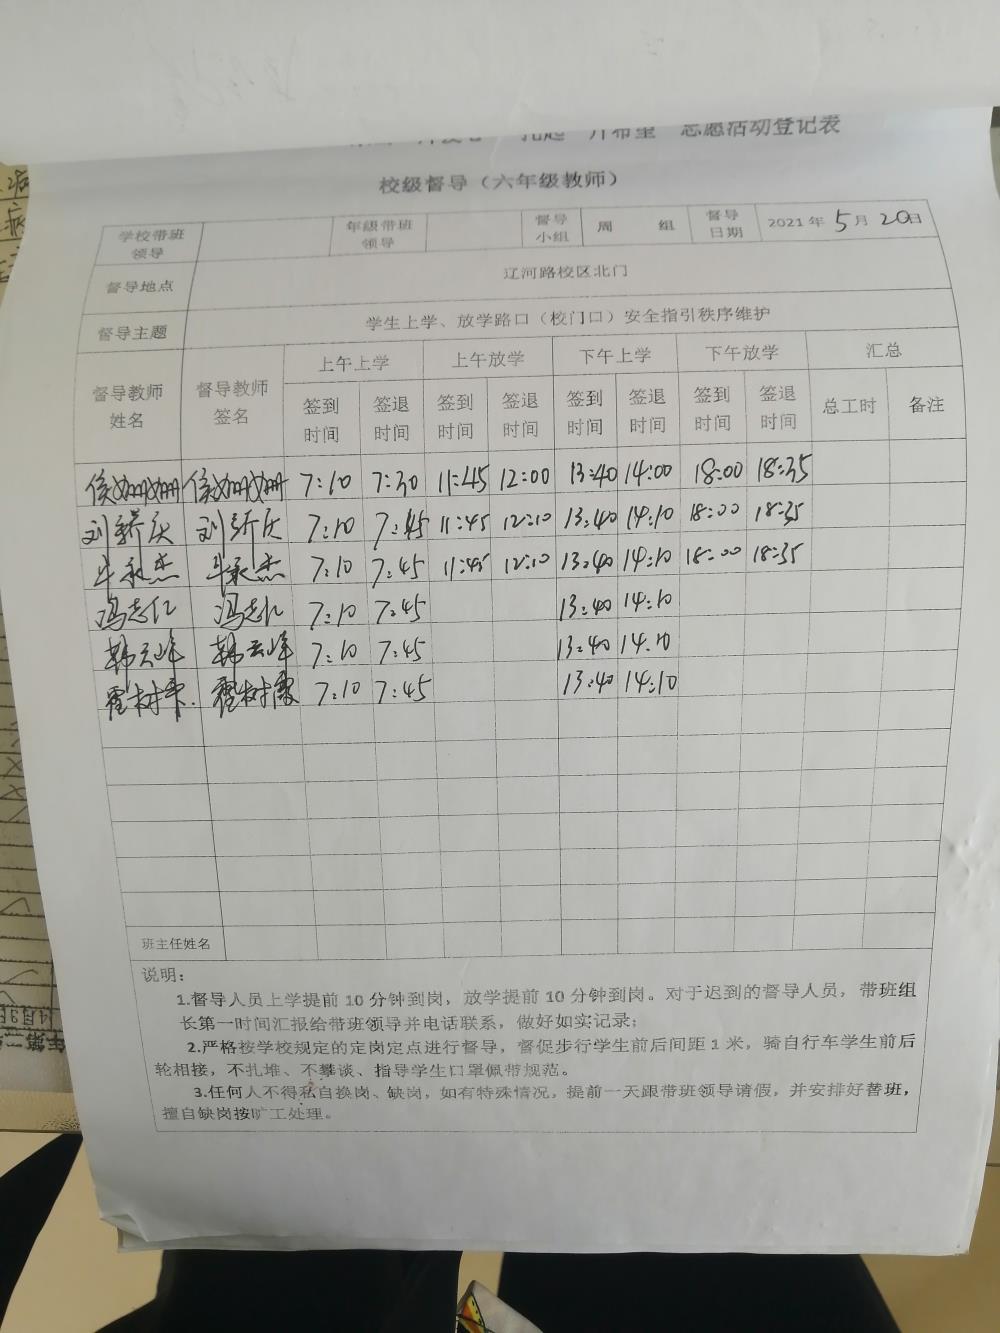 志愿活动登记表
校级督导（六年级教师）
学校带班领导 年级带班领导 督导小组 周 组 督导日期 2021年5月20日
督导地点 辽河路校区北门
督导主题 学生上学、放学路口（校门口）安全指引秩序维护
督导教师姓名 督导教师签名 上午上学 上午放学 下午上学 下午放学 汇总
签到时间 签退时间 签到时间 签退时间 签到时间 签退时间 签到时间 签退时间 总工时 备注
侯姗姗 侯姗姗 7:10 7:30 11:45 12:00 13:40 14:00 18:00 18:35
7:10 7:45 11:45 12:10 13:40 14:10 18:00 18:35
7:10 7:45 11:45 12:10 13:40 14:10 18:00 18:35
冯志仁 冯志仁 7:10 7:45 13:40 14:10
韩云峰 韩云峰 7:10 7:45 13:40 14:10
7:10 7:45 13:40 14:10
班主任姓名
说明：
1.督导人员上学提前10分钟到岗，放学提前10分钟到岗。对于迟到的督导人员，带班组
长第一时间汇报给带班领导并电话联系，做好如实记录；
2.严格按学校规定的定岗定点进行督导，督促步行学生前后间距1米，骑自行车学生前后
轮相接，不扎堆、不攀谈、指导学生口罩佩带规范。
3.任何人不得私自换岗、缺岗，如有特殊情况，提前一天跟带班领导请假，并安排好替班，
擅自缺岗按旷工处理。